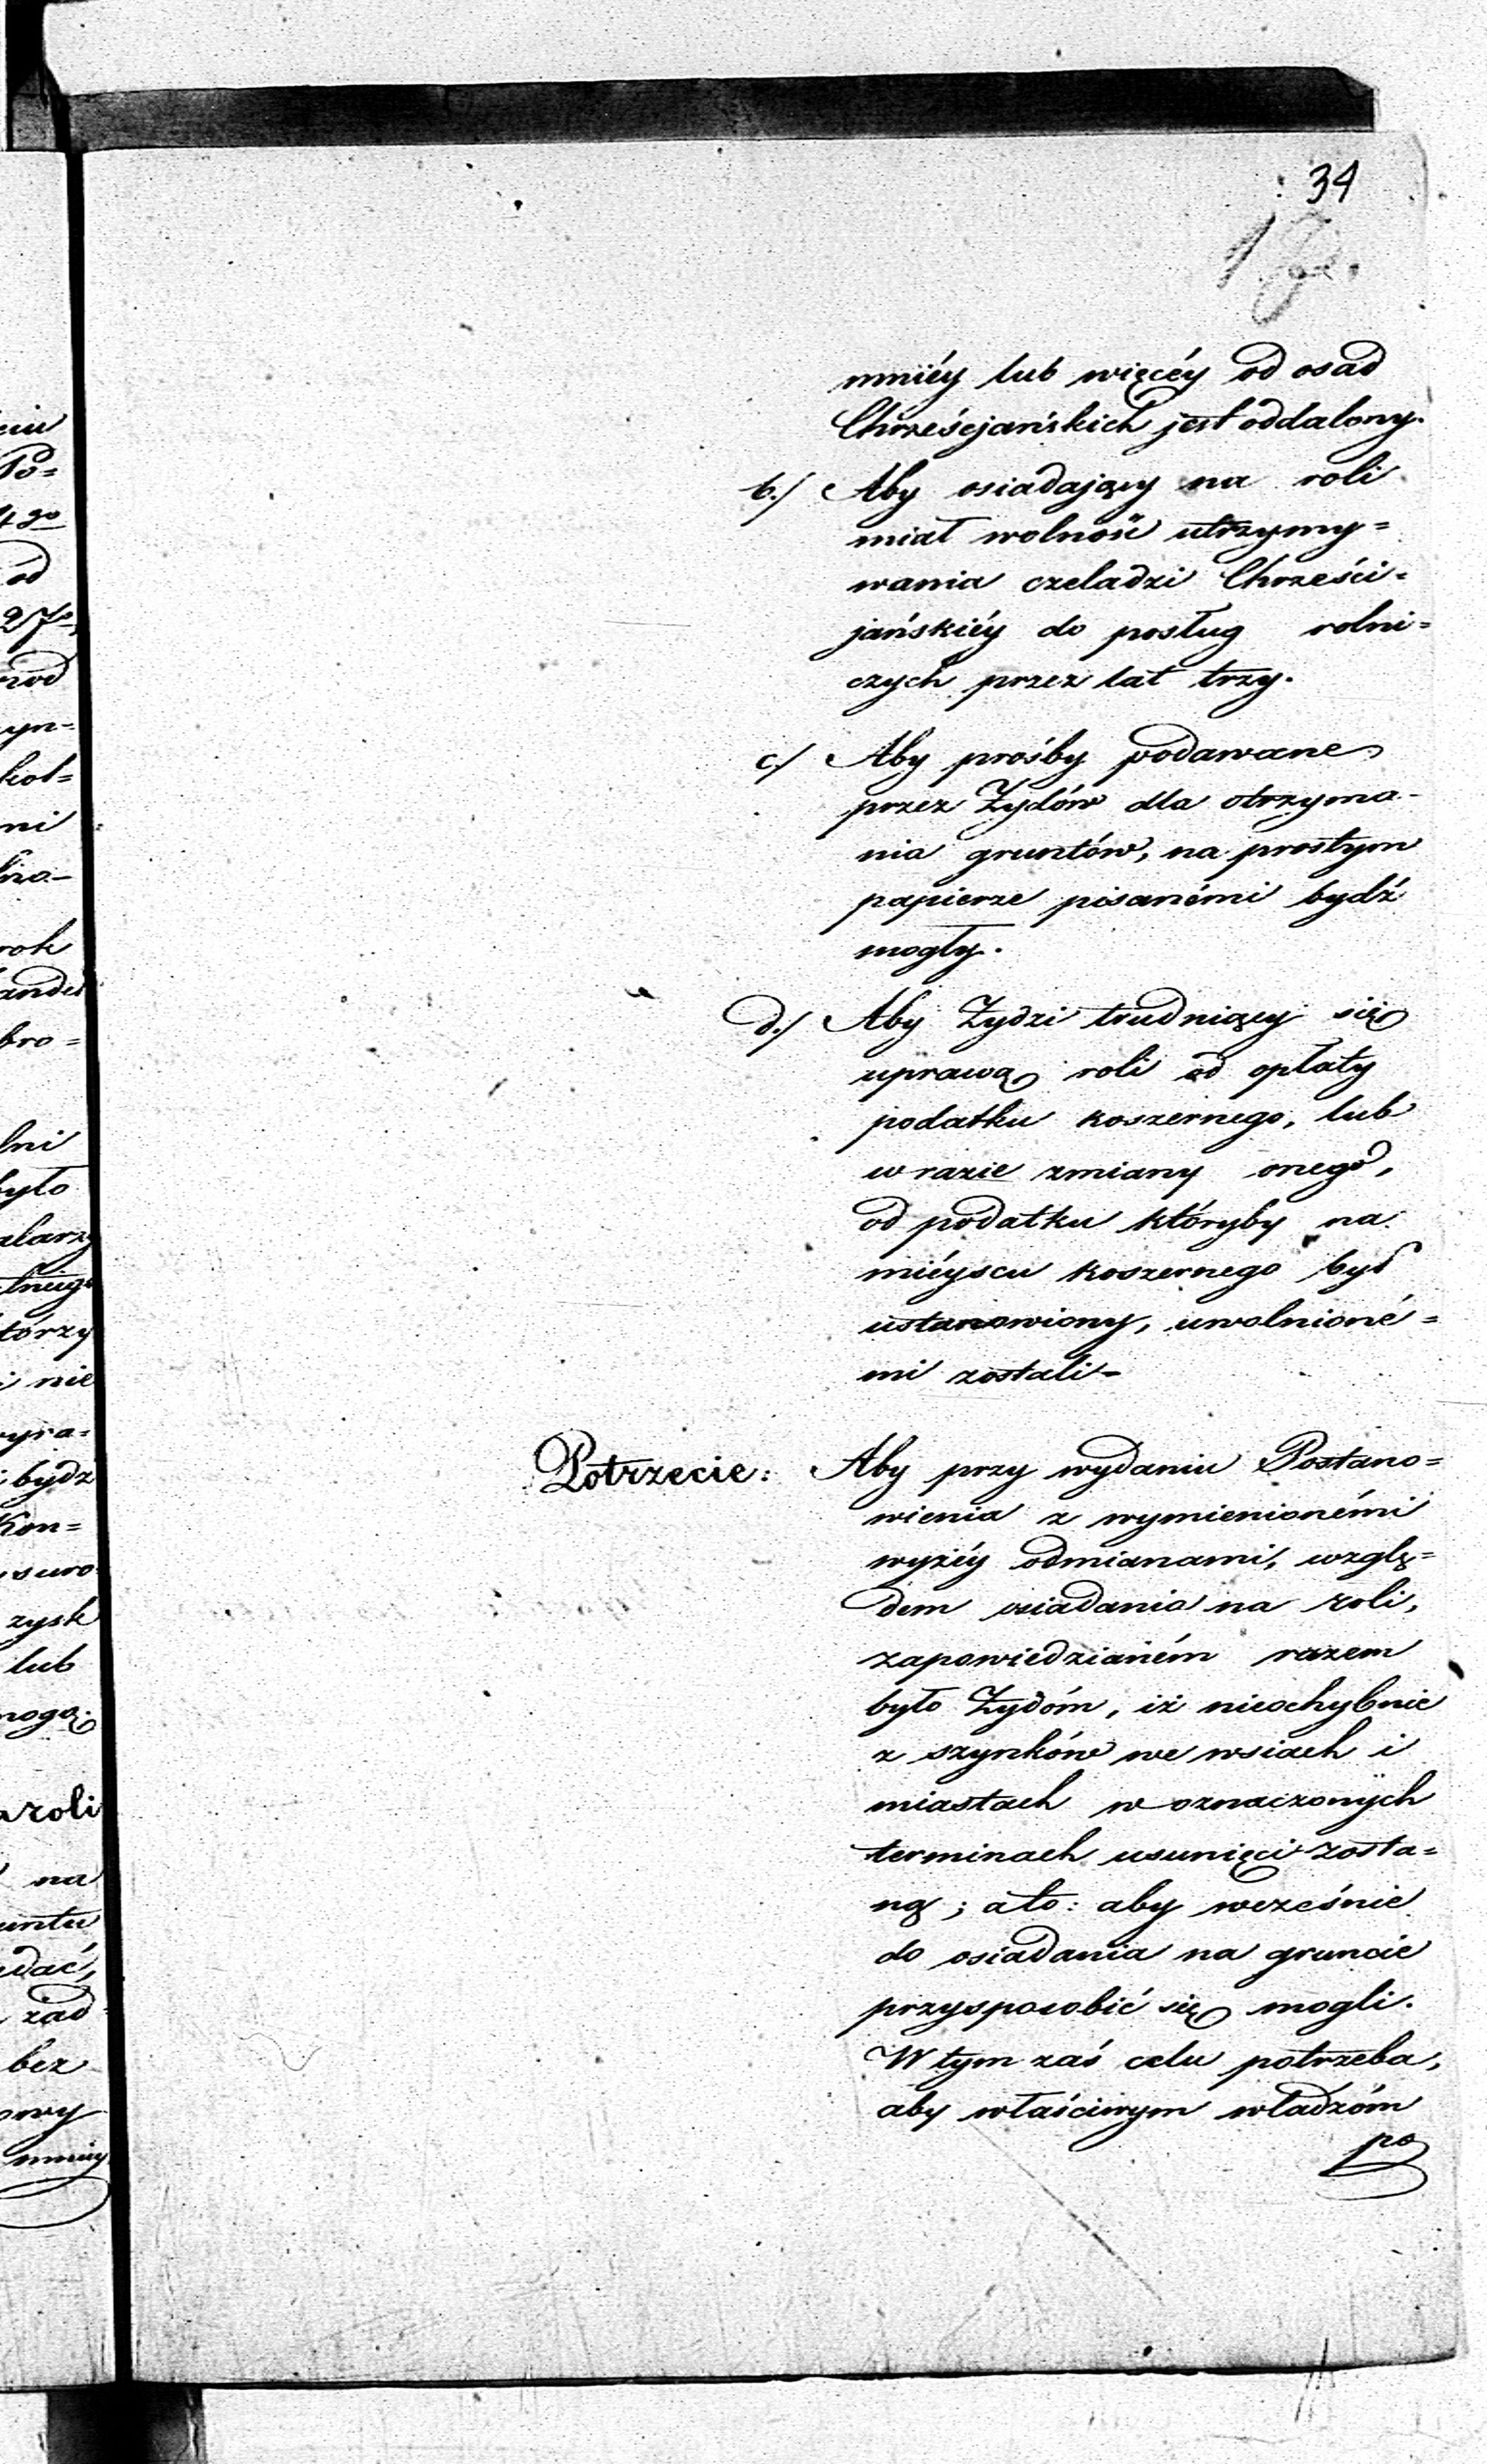 34
mniéy lub więcéy od osad
Chrześcjańskich jest oddalony.
b./ Aby osiadający na roli
miał wolność utrzymy=
wania czeladzi Chrześci=
jańskiéy do posług rolni=
czych przez lat trzy.
c./ Aby prośby podawane
przez Żydów dla otrzyma-
nia gruntów, na prostym
papierze pisanémi bydź
mogły.
d./ Aby Żydzi trudniący się
uprawą roli od opłaty
podatku koszernego, lub
w razie zmiany onego,
od podatku któryby na
miéyscu koszernego był
ustanowiony, uwolnioné=
mi zostali-
Potrzecie: Aby przy wydaniu Postano=
wienia z wymienionémi
wyżéy odmianami, wzglę=
dem osiadania na roli,
zapowiedzianém razem
było Żydóm, iż nieochybnie
z szynków we wsiach i
miastach w oznaczonych
terminach usunięci zosta=
ną; ato: aby wcześnie
do osiadania na gruncie
przysposobić się mogli.
W tym zaś celu potrzeba,
aby właściwym władzóm
po